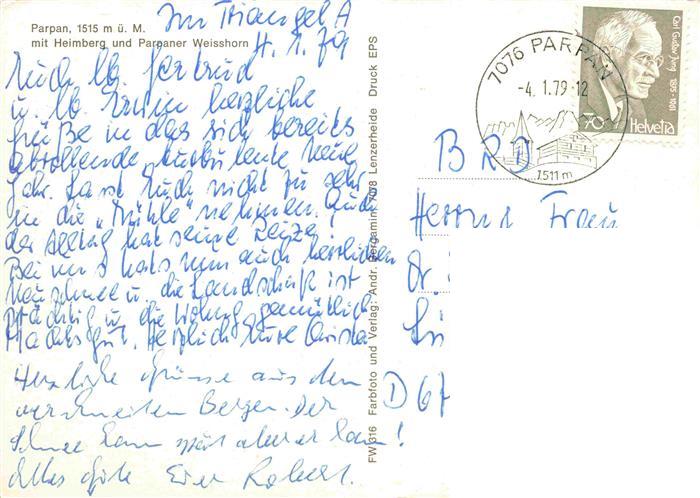 Parpan, 1515 m ü. M.
mit Heimberg und Parpaner Weisshorn
Im Triangel A
4. 1. 79
Euch lb. Gertrud
u. lb. Erwin herzliche
Grüße in das sich bereits
abrollende, turbulente Neue
Jahr. Lasst Euch nicht zu sehr
in die "Mühle" nehmen. Auch
der Alltag hat seine Reize!
Bei uns hats nun auch herrlichen
Neuschnee u. die Landschaft ist
prächtig u. die Wohng. gemütlich
Machts gut. Herzlich Eure
Herzliche Grüsse aus den
verschneiten Bergen. Der
Schnee kam spät aber er kam!
Alles Gute Euer Robert.
FW 316 Farbfoto und Verlag: Andr. Bergamin, 7078 Lenzerheide Druck EPS
7076 PARPAN
-4. 1.79-12
1511 m
Carl Gustav Jung 1875-1961
70 Helvetia
BRD
Herrn u Frau
Dr.
D 67